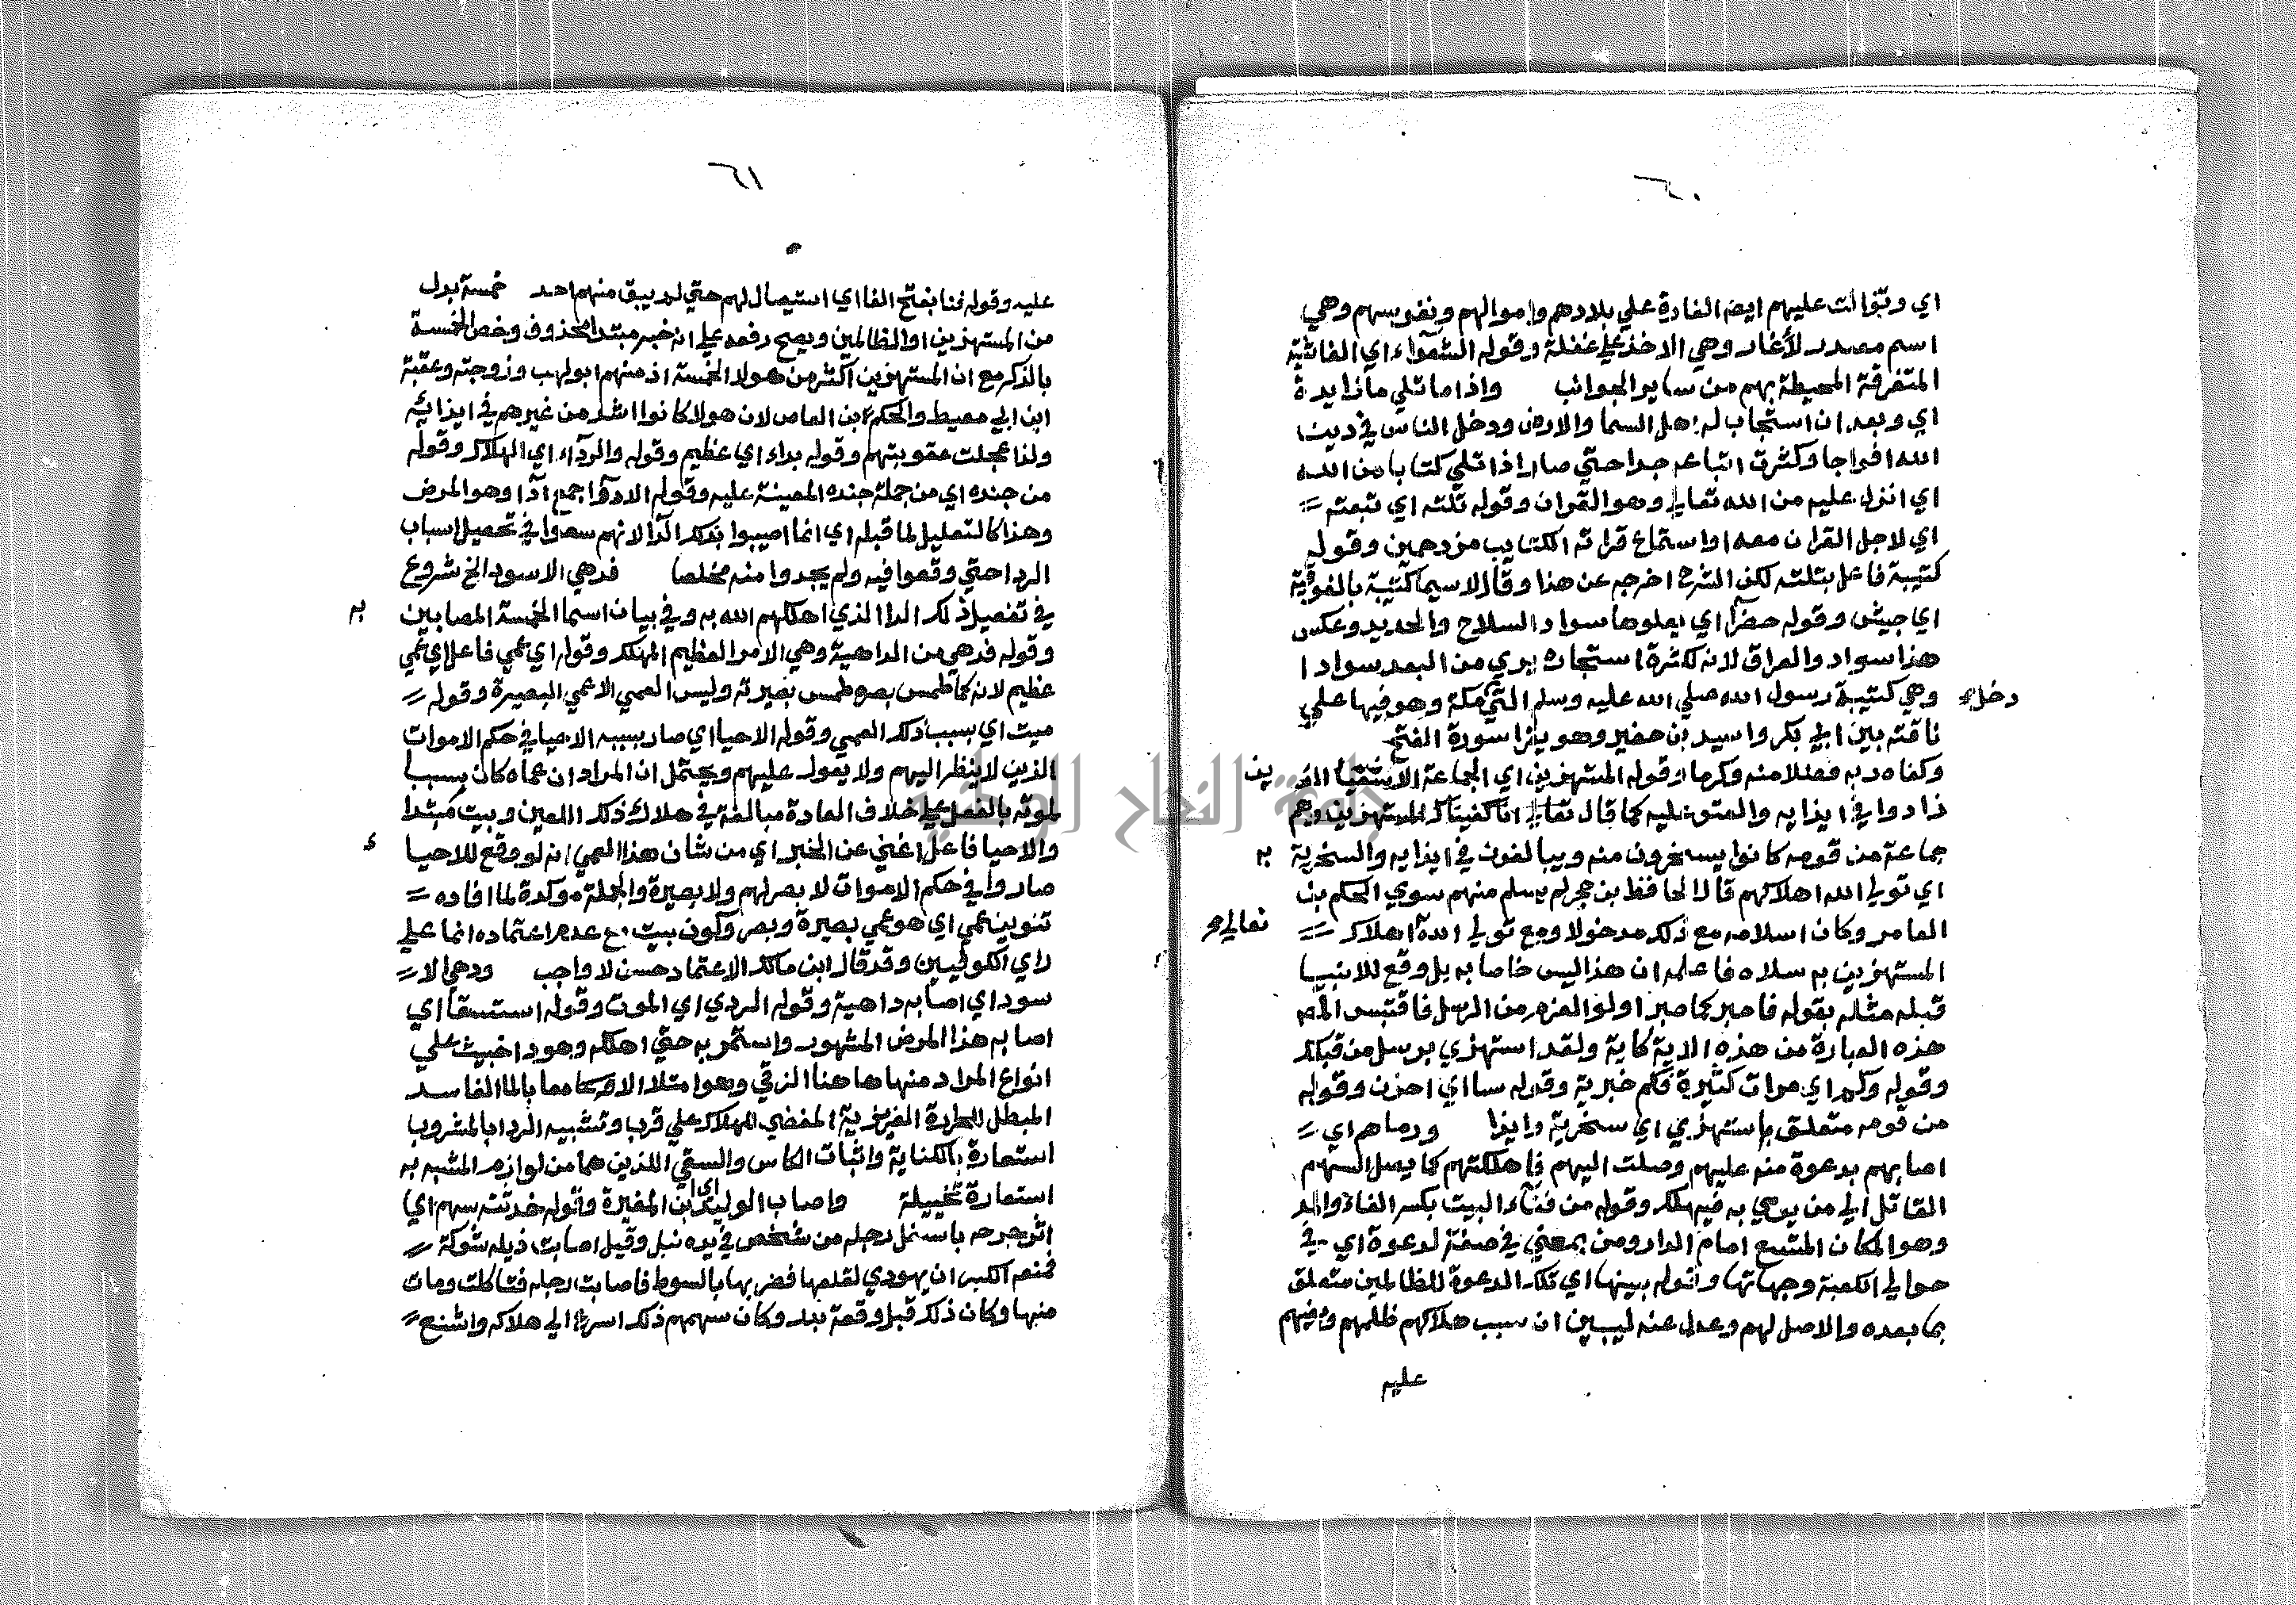 ٦٠
اي وتوالت عليهم ايض الغارة علي بلادهم واموالهم ونفوسهم وهي
اسم مصدر لأغار وهي الاخذ علي غفلة وقوله الشعواء اي الفاشية
المتفرقة المحيطة بهم من ساير الجوانب واذا ما تلي ما زايدة
اي وبعد ان استجاب له اهل السما والارض ودخل الناس في دين
الله افواجا وكثرت اتباعه جدا حتي صار اذا تلي كتابا من الله
اي انزل عليه من الله تعالي وهو القران وقوله تلته اي تبعته
اي لاجل القران معه او استماع قراته الكتايب مزدحمين وقوله
كتيبة فاعل بتلته لكن الشرح اخرجه عن هذا وقال لاسيما كتيبة بالفوقية
اي جيش وقوله خضرا اي يعلوها سواد السلاح والحديد وعكس
هذا سواد والعراق لانه لكثرة استجاره يري من البعد سوادا
وهي كتيبة رسول الله صلي الله عليه وسلم التي مكة وهو فيها علي
دخل
ناقته بين ابي بكر واسيد بن حضير وهو يقرا سورة الفتح
وكفاه ربه فضلا منه وكرما وقوله المستهزين اي الجماعة الاشقيا الذ
ين
زادوا في ايذايه والعتو عليه كما قال تعالي انا كفيناك المستهزين وهم
جماعة من قومه كانوا يسخرون منه ويبالغون في ايذايه والسخرية
به
اي تولي الله اهلاكهم قال الحافظ بن حجر لم يسلم منهم سوي الحكم بن
العاص وكان اسلامه مع ذلك مدخولا ومع تولي الله اهلاك
تعالي
المستهزين به سلاه فاعلمه ان هذا ليس خاصا به بل وقع للانبيا
قبله مثله بقوله فاصبر كما صبر اولوا العزم من الرسل فاقتبس المص
هذه العبارة من هذه الاية كاية ولقد استهزي برسل من قبلك
وقوله وكم اي مرات كثيرة فكم خبرية وقوله سا اي احزن وقوله
من قومه متعلق باستهزي اي سخرية وايذا ورماهم اي
اصابهم بدعوة منه عليهم وصلت اليهم فاهلكتهم كما يصل السهم
القاتل الي من يرمي به فيهلك وقوله من فناء البيت بكسر الفاء والمد
وهو المكان المتسع امام الدار ومن بمعني في صفة لدعوة اي في
حوالي الكعبة وجهاتها وقوله بينها اي تلك الدعوة للظالمين متعلق
بما بعده والاصل لهم وعدل عنه ليبين ان سبب هلاكهم ظلمهم وبغيهم
عليه
٦١
عليه وقوله فنا بفتح الفا اي استيصال لهم حتي لم يبق منهم احد خمسة بدل
من المستهزين او الظالمين ويصح رفعه علي انه خبر مبتدا محذوف وخص الخمسة
بالذكر مع ان المستهزين اكثر من هولا الخمسة اذ منهم ابولهب وزوجته وعقبة
ابن ابي معيط والحكم ابن العاص لان هولا كانوا اشد من غيرهم في ايذائه
ولذا عجلت عقوبتهم وقوله بداء اي عظيم وقوله والرداء اي الهلاك وقوله
من جنده اي من جملة جنده المعينة عليه وقوله الادوا جمع ادا وهو المرض
وهذا كالتعليل لما قبله اي انما اصيبوا بذلك الدا لانهم سعوا في تحصيل اسباب
الردا حتي وقعوا فيه ولم يجدوا منه مخلصا فدهي الاسود الخ شروع
في تفصيل ذلك الدا الذي اهلكهم الله به وفي بيان اسما الخمسة المصابين
به
وقوله فدهي من الداهية وهي الامر العظيم المهلك وقوله اي عمي فاعل اي عمي
عظيم لانه كما طمس بصره طمس بصيرته وليس العمي الا عمي البصيرة وقوله
ميت اي بسبب ذلك العمي وقوله الاحيا اي صار بسببه الاحيا في حكم الاموات
الذين لا ينظر اليهم ولا يعول عليهم ويحتمل ان المراد ان عماه كان سببا
لموته بالفعل علي خلاف العادة مبالغة في هلاك ذلك اللعين وبيت مبتدا
والاحيا فاعل اغني عن الخبر اي من شان هذا العمي انه لو وقع للاحيا
ء
صاروا في حكم الاموات لا بصر لهم ولا بصيرة والجملة موكدة لما افاده
تنوين عمي اي هو عمي بصيرة وبصر وكون بيت مع عدم اعتماده انما علي
راي الكوفيين وقد قال ابن مالك الاعتماد حسن لا واجب ودهي الا
سود اي اصابه داهية وقوله الردي اي الموت وقوله استسقا اي
اصابه هذا المرض المشهور واستمر به حتي اهلكه وهو داخبيث علي
انواع المراد منها هاهنا الزقي وهو امتلا الامعا بالما الفاسد
المبطل للحرارة الغريزية المفضي للهلاك علي قرب وتشبيه الردا بالمشروب
استعارة بالكناية واثبات الكاس والسقي اللذين هما من لوازم المشبه به
استعارة تخييلية واصاب الوليد اي ابن المغيرة وقوله خدشة سهم اي
اثر جرحه باسفل رجله من شخص في يده نبل وقيل اصابت ذيله شوكة
فمنعه الكبر ان يهودي لقلعها فضربها بالسوط فاصابت رجله فتاكلت ومات
منها وكان ذلك قبل وقعة بدر وكان سهمهم ذلك اسرع الي هلاكه واشنع